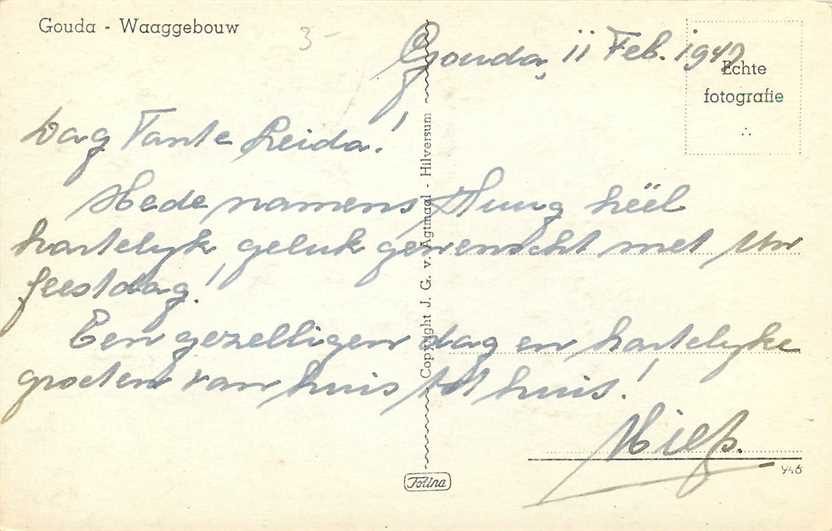 Gouda - Waaggebouw
3-
Gouda, 11 Feb. 1949
Echte
fotografie
Dag Tante Leida!
Mede namens Huug hëel
hartelyk geluk gewenscht met Uw
feestdag!
Een gezelligen dag en hartelyke
groeten van huis tot huis!
Miep.
Copyright J. G. v. Agtmaal - Hilversum
946